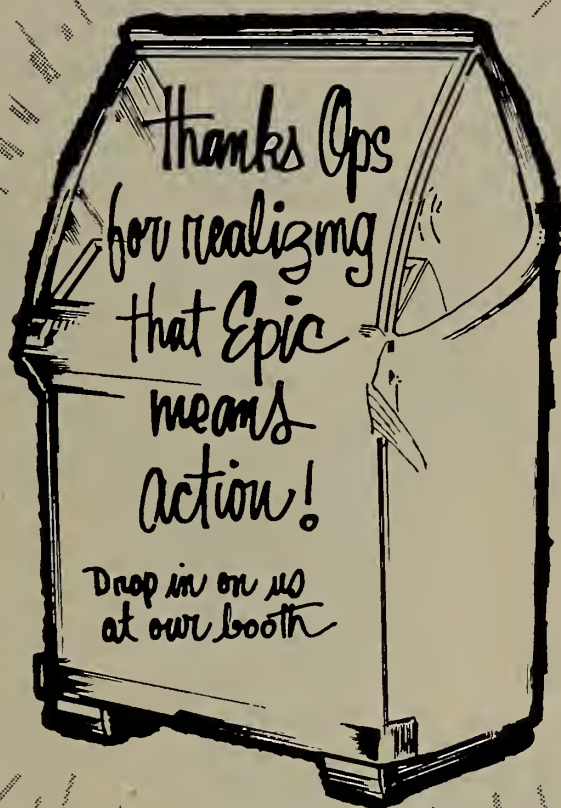 Thanks Ops
for realizing
that Epic
means
action!
Drop in on us
at our booth